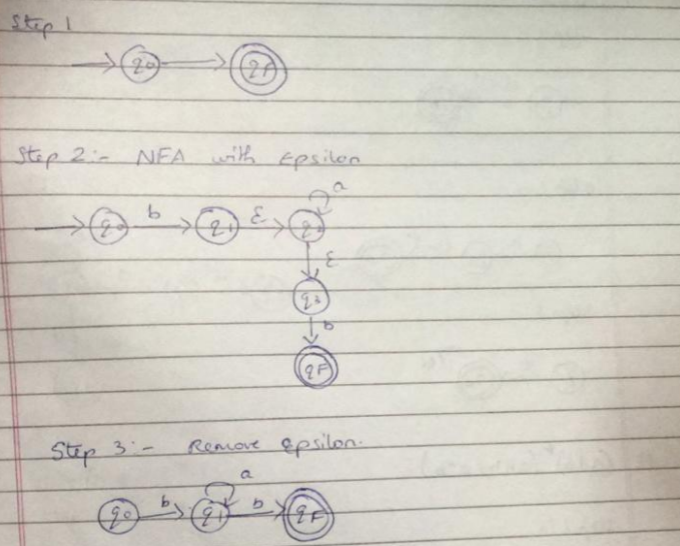 Step 1
q0 qF
Step 2:- NFA with Epsilon
a
q0 b q1 ε q2
ε
q3
b
qF
Step 3:- Remove epsilon.
a
q0 b q1 b qF